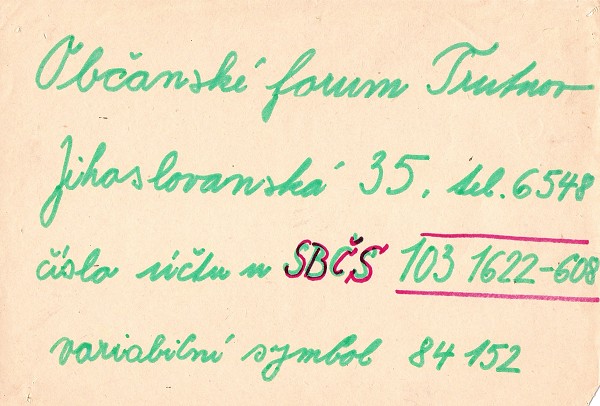 Občanské forum Trutnov
Jihoslovanská 35, tel. 6548
číslo účtu u SBČS 103 1622-608
variabilní symbol 84 152